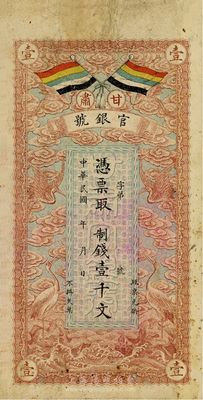 壹 壹
肅 甘
號銀官
字第 號
憑票取 制錢壹千文
中華民國 年 月 日
壹 壹